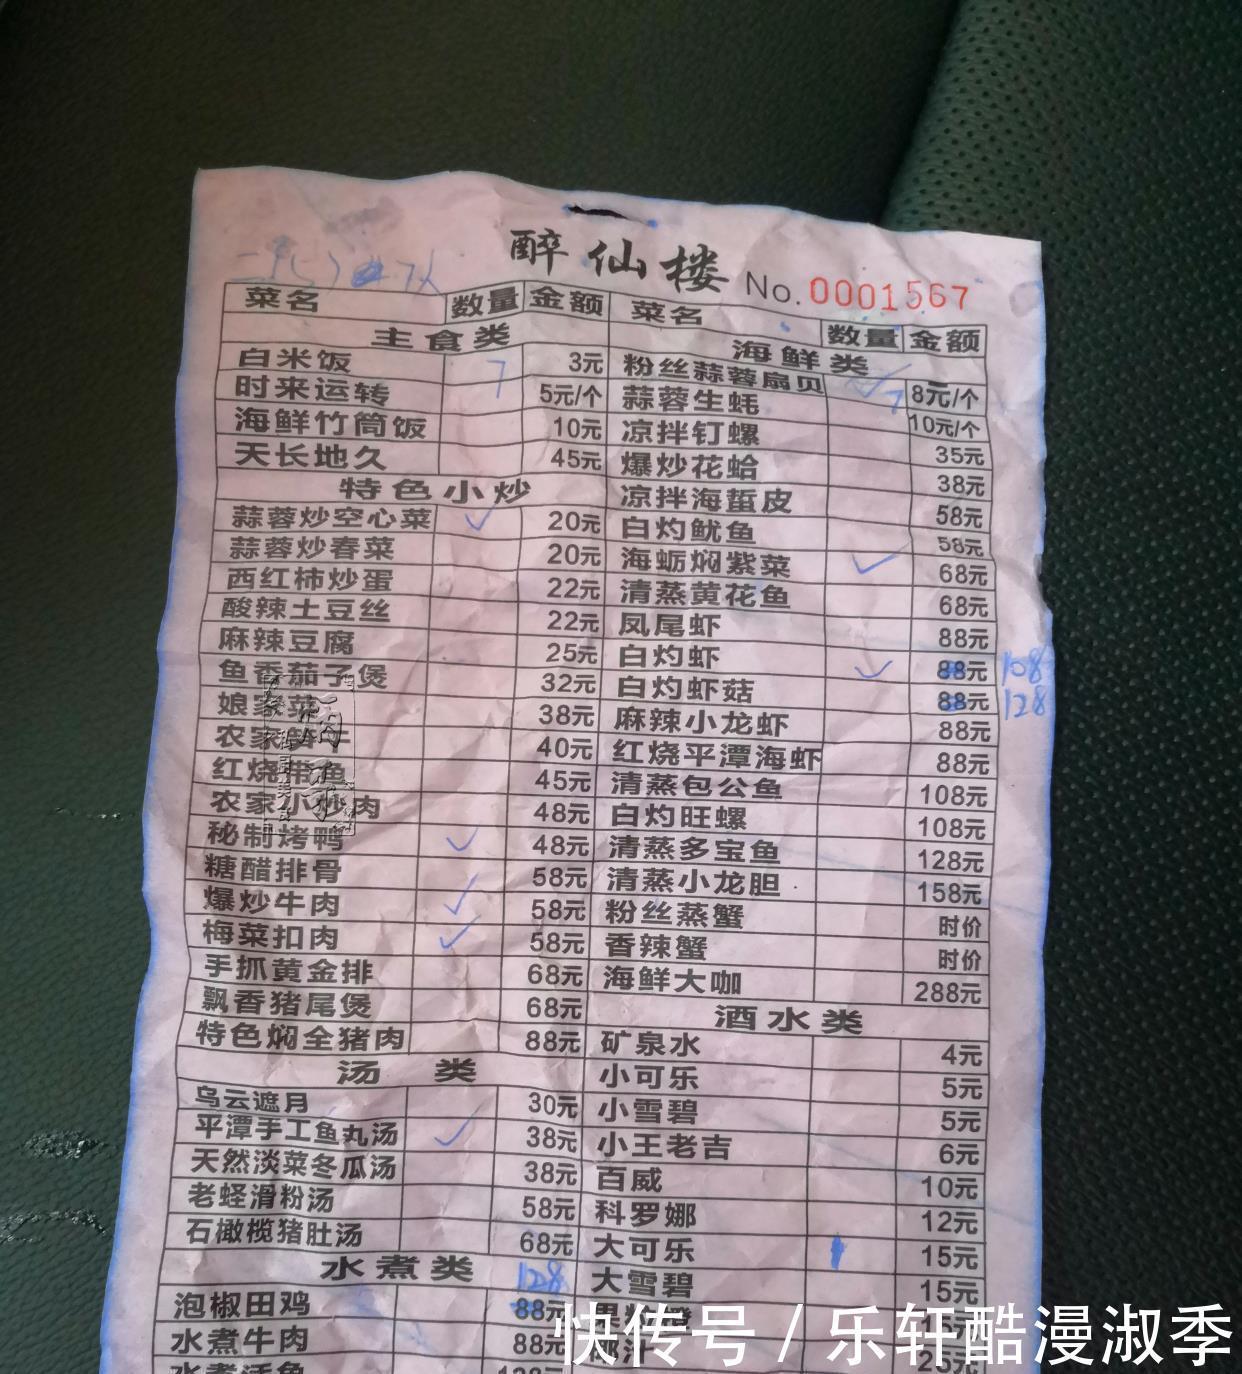 醉仙楼
No.0001567
菜名 数量 金额
主食类
白米饭 7 3元
时来运转 5元/个
海鲜竹筒饭 10元
天长地久 45元
特色小炒
蒜蓉炒空心菜 ✓ 20元
蒜蓉炒春菜 20元
西红柿炒蛋 22元
酸辣土豆丝 22元
麻辣豆腐 25元
鱼香茄子煲 32元
娘家菜 38元
农家 40元
红烧带鱼 45元
农家小炒肉 48元
秘制烤鸭 ✓ 48元
糖醋排骨 58元
爆炒牛肉 ✓ 58元
梅菜扣肉 ✓ 58元
手抓黄金排 68元
飘香猪尾煲 68元
特色焖全猪肉 88元
汤类
乌云遮月 30元
平潭手工鱼丸汤 ✓ 38元
天然淡菜冬瓜汤 38元
老蛏滑粉汤 58元
石橄榄猪肚汤 68元
水煮类
128
泡椒田鸡 88元
水煮牛肉 88元
水煮活鱼
菜名 数量 金额
海鲜类
粉丝蒜蓉扇贝 ✓ 7 8元/个
蒜蓉生蚝 10元/个
凉拌钉螺 35元
爆炒花蛤 38元
凉拌海蜇皮 58元
白灼鱿鱼 58元
海蛎焖紫菜 ✓ 68元
清蒸黄花鱼 68元
凤尾虾 88元
白灼虾 ✓ 88元 108
白灼虾菇 88元 128
麻辣小龙虾 88元
红烧平潭海虾 88元
清蒸包公鱼 108元
白灼旺螺 108元
清蒸多宝鱼 128元
清蒸小龙胆 158元
粉丝蒸蟹 时价
香辣蟹 时价
海鲜大咖 288元
酒水类
矿泉水 4元
小可乐 5元
小雪碧 5元
小王老吉 6元
百威 10元
科罗娜 12元
大可乐 1 15元
大雪碧 15元
快传号 / 乐轩酷漫淑季